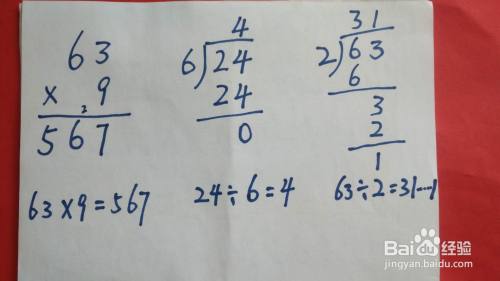 63
× 9
2
567
63×9=567
4
6)24
24
0
24÷6=4
31
2)63
6
3
2
1
63÷2=31····1
Baidu经验
jingyan.baidu.com